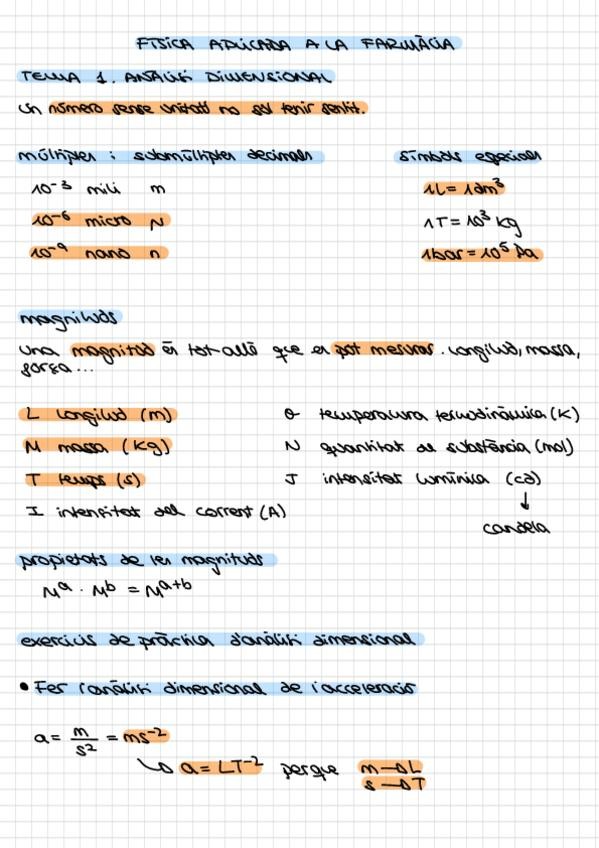 FÍSICA APLICADA A LA FARMÀCIA
TEMA 1. ANÀLISI DIMENSIONAL
Un número sense unitats no sol tenir sentit.
múltiples i submúltiples decimals
símbols especials
10⁻³ mili m
1L = 1dm³
10⁻⁶ micro μ
1T = 10³ kg
10⁻⁹ nano n
1bar = 10⁵ Pa
magnituds
una magnitud és tot allò que es pot mesurar. Longitud, massa,
força...
L longitud (m)
θ temperatura termodinàmica (K)
M massa (Kg)
N quantitat de substància (mol)
T temps (s)
J intensitat lumínica (cd)
I intensitat del corrent (A)
↓
candela
propietats de les magnituds
Mᵃ · Mᵇ = Mᵃ⁺ᵇ
exercicis de pràctica d'anàlisi dimensional
• Fer l'anàlisi dimensional de l'acceleració
a = m/s² = ms⁻²
↳ a = LT⁻² perque m → L
s → T